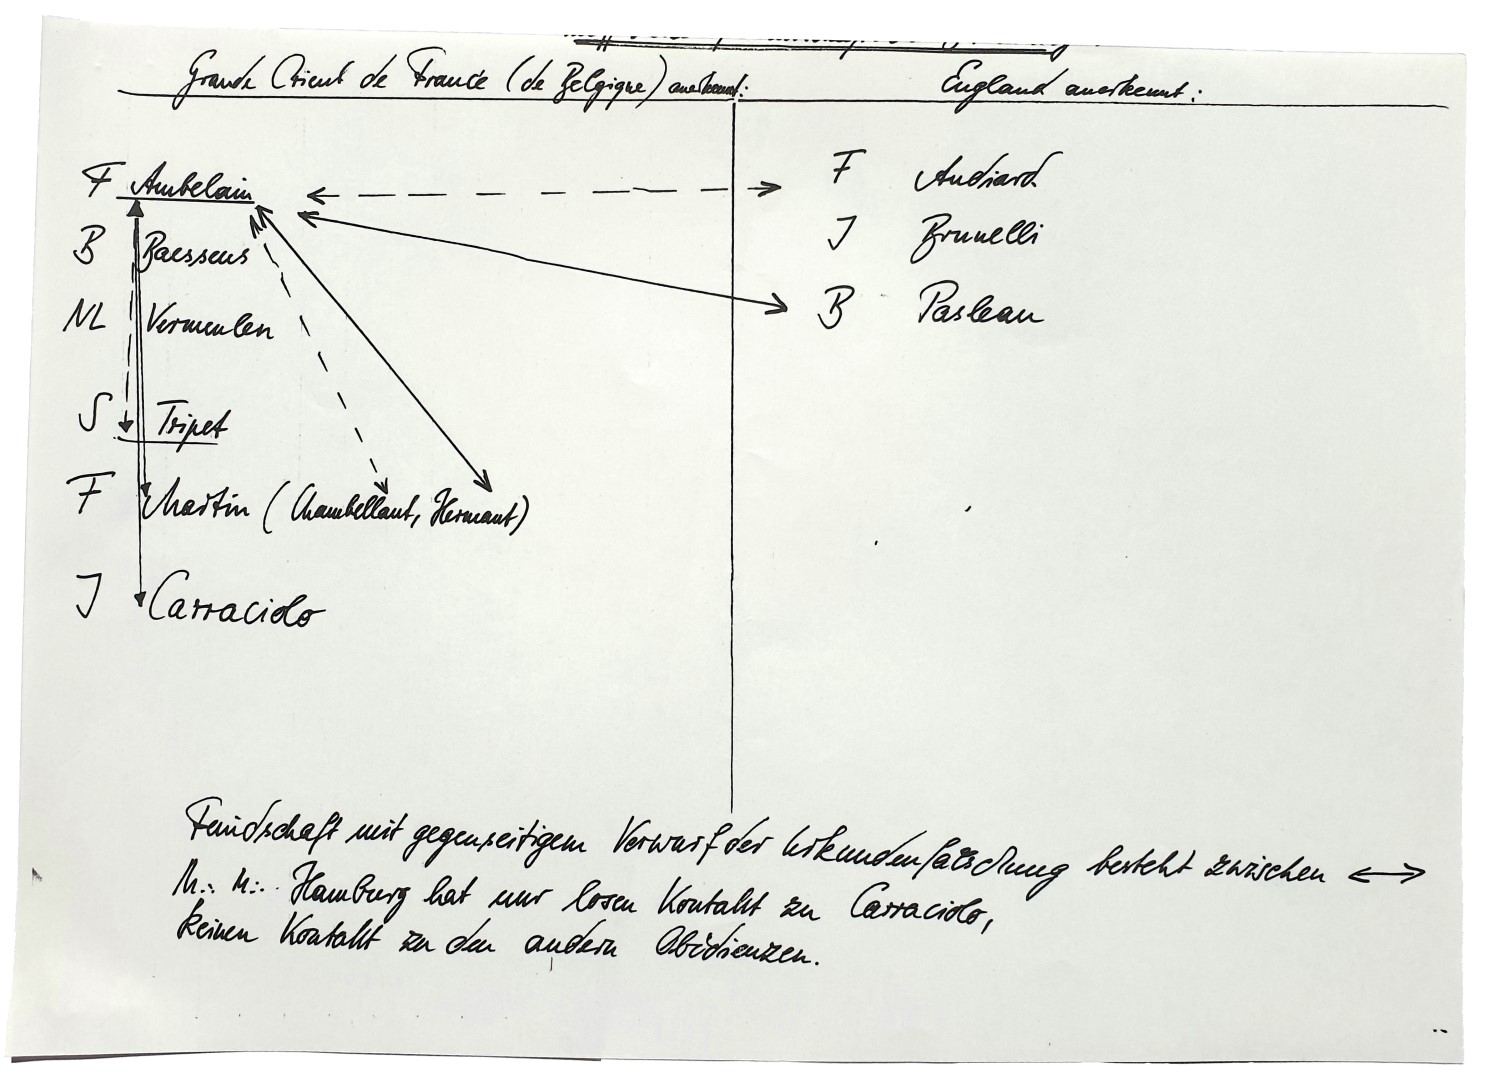 Grande Orient de France (de Belgique) anerkennt:
England anerkennt:
F Ambelain
B Baessens
NL Vermeulen
S Tripet
F Martin (Chambellant, Hermant)
J Carraciolo
F Audiard
J Brunelli
B Pasleau
Feindschaft mit gegenseitigem Vorwurf der Urkundenfälschung besteht zwischen ↔
M∴ M∴ Hamburg hat nur losen Kontakt zu Carraciolo,
keinen Kontakt zu den andern Obödienzen.